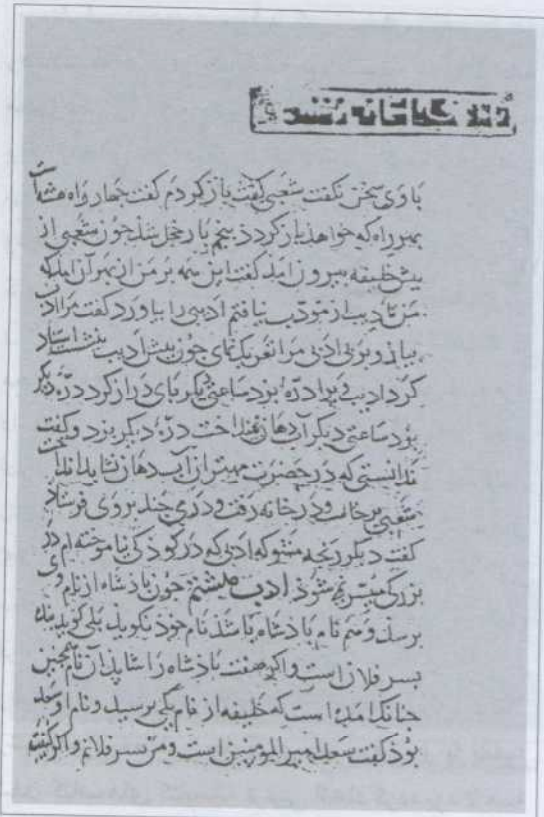 با وی سخن نکفت شعبی کفت باز کردم کفت چهار راه هشت
بهر راه که خواهذ باز کردد پنجم بار خجل شذ چون شعبی از
پیش خلیفه بیرون امذ کفت این همه بر من از بهر آن امذ که
من تادیب از مودب نیافتم ادیبی را بیاورد کفت مرا ادب
بیاموز و بر بی ادبی مرا تعریک نمای چون پیش ادیب بنشست استاد
کرد ادیب ویرا درّه بزد ساعتی دیکر پای دراز کرد درّه دیکر
بزد ساعتی دیکر آب دهان بینداخت درّه دیکر بزد و کفت
ندانستی که در حضرت مهتران آب دهان نشاید انداخت
شعبی برخاست و در خانه رفت و درمی چند بروی فرستاد
کفت دیکر رنجه مشو که ادبی که در کوذکی نیاموخته ام در
بزرکی میسر نمی شوذ ادب هشتم چون باذشاه از نام وی
برسذ و هم نام باذشاه باشذ نام خوذ نکویذ بلی کویذ بنده
بسر فلان است و اکر صفت باذشاه را شایذ آن نام همچنین
چنانک امذه است که خلیفه از نام یکی برسید و نام او سعید
بوذ کفت سعید امیر المومنین است و من بسر فلانم و اکر کنیت